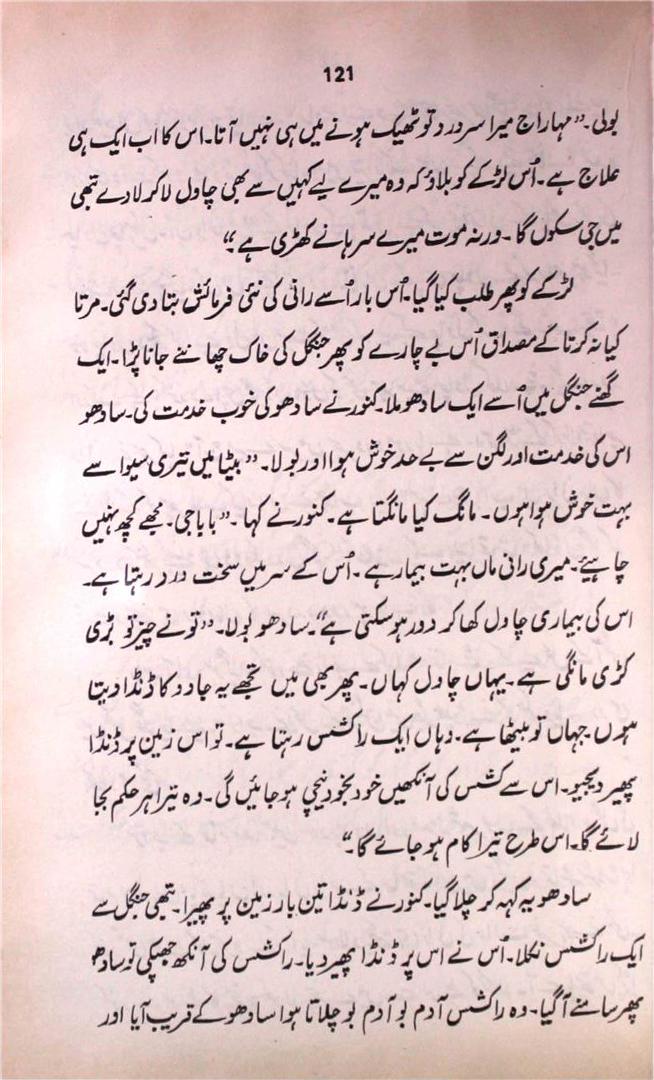 121
بولی۔ ”مہاراج میرا سر درد تو ٹھیک ہونے میں ہی نہیں آتا۔ اس کا اب ایک ہی
علاج ہے۔ اُس لڑکے کو بلاؤ کہ وہ میرے لیے کہیں سے بھی چاول لا کر لادے تبھی
میں جی سکوں گا۔ ورنہ موت میرے سرہانے کھڑی ہے“
لڑکے کو پھر طلب کیا گیا۔ اُس بار اُسے رانی کی نئی فرمائش بتا دی گئی۔ مرتا
کیا نہ کرتا کے مصداق اُس بے چارے کو پھر جنگل کی خاک چھاننے جانا پڑا۔ ایک
گھنے جنگل میں اُسے ایک سادھو ملا۔ کنور نے سادھو کی خوب خدمت کی۔ سادھو
اس کی خدمت اور لگن سے بے حد خوش ہوا اور بولا۔ ”بیٹا میں تیری سیوا سے
بہت خوش ہوا ہوں۔ مانگ کیا مانگتا ہے۔ کنور نے کہا۔ ”بابا جی۔ مجھے کچھ نہیں
چاہیئے۔ میری رانی ماں بہت بیمار ہے۔ اُس کے سر میں سخت درد رہتا ہے۔
اس کی بیماری چاول کھا کر دور ہو سکتی ہے“۔ سادھو بولا۔ ”تو نے چیز تو بڑی
کڑی مانگی ہے۔ یہاں چاول کہاں۔ پھر بھی میں تجھے یہ جادو کا ڈنڈا دیتا
ہوں۔ جہاں تو بیٹھا ہے۔ وہاں ایک راکشس رہتا ہے۔ تو اس زمین پر ڈنڈا
پھیر دیجیو۔ اس سے کشس کی آنکھیں خود بخود نیچی ہو جائیں گی۔ وہ تیرا ہر حکم بجا
لائے گا۔ اس طرح تیرا کام ہو جائے گا۔“
سادھو یہ کہہ کر چلا گیا۔ کنور نے ڈنڈا تین بار زمین پر پھیرا۔ تبھی جنگل سے
ایک راکشس نکلا۔ اُس نے اس پر ڈنڈا پھیر دیا۔ راکشس کی آنکھ جھپکی تو سادھو
پھر سامنے آ گیا۔ وہ راکشس آدم بو آدم بو چلاتا ہوا سادھو کے قریب آیا اور